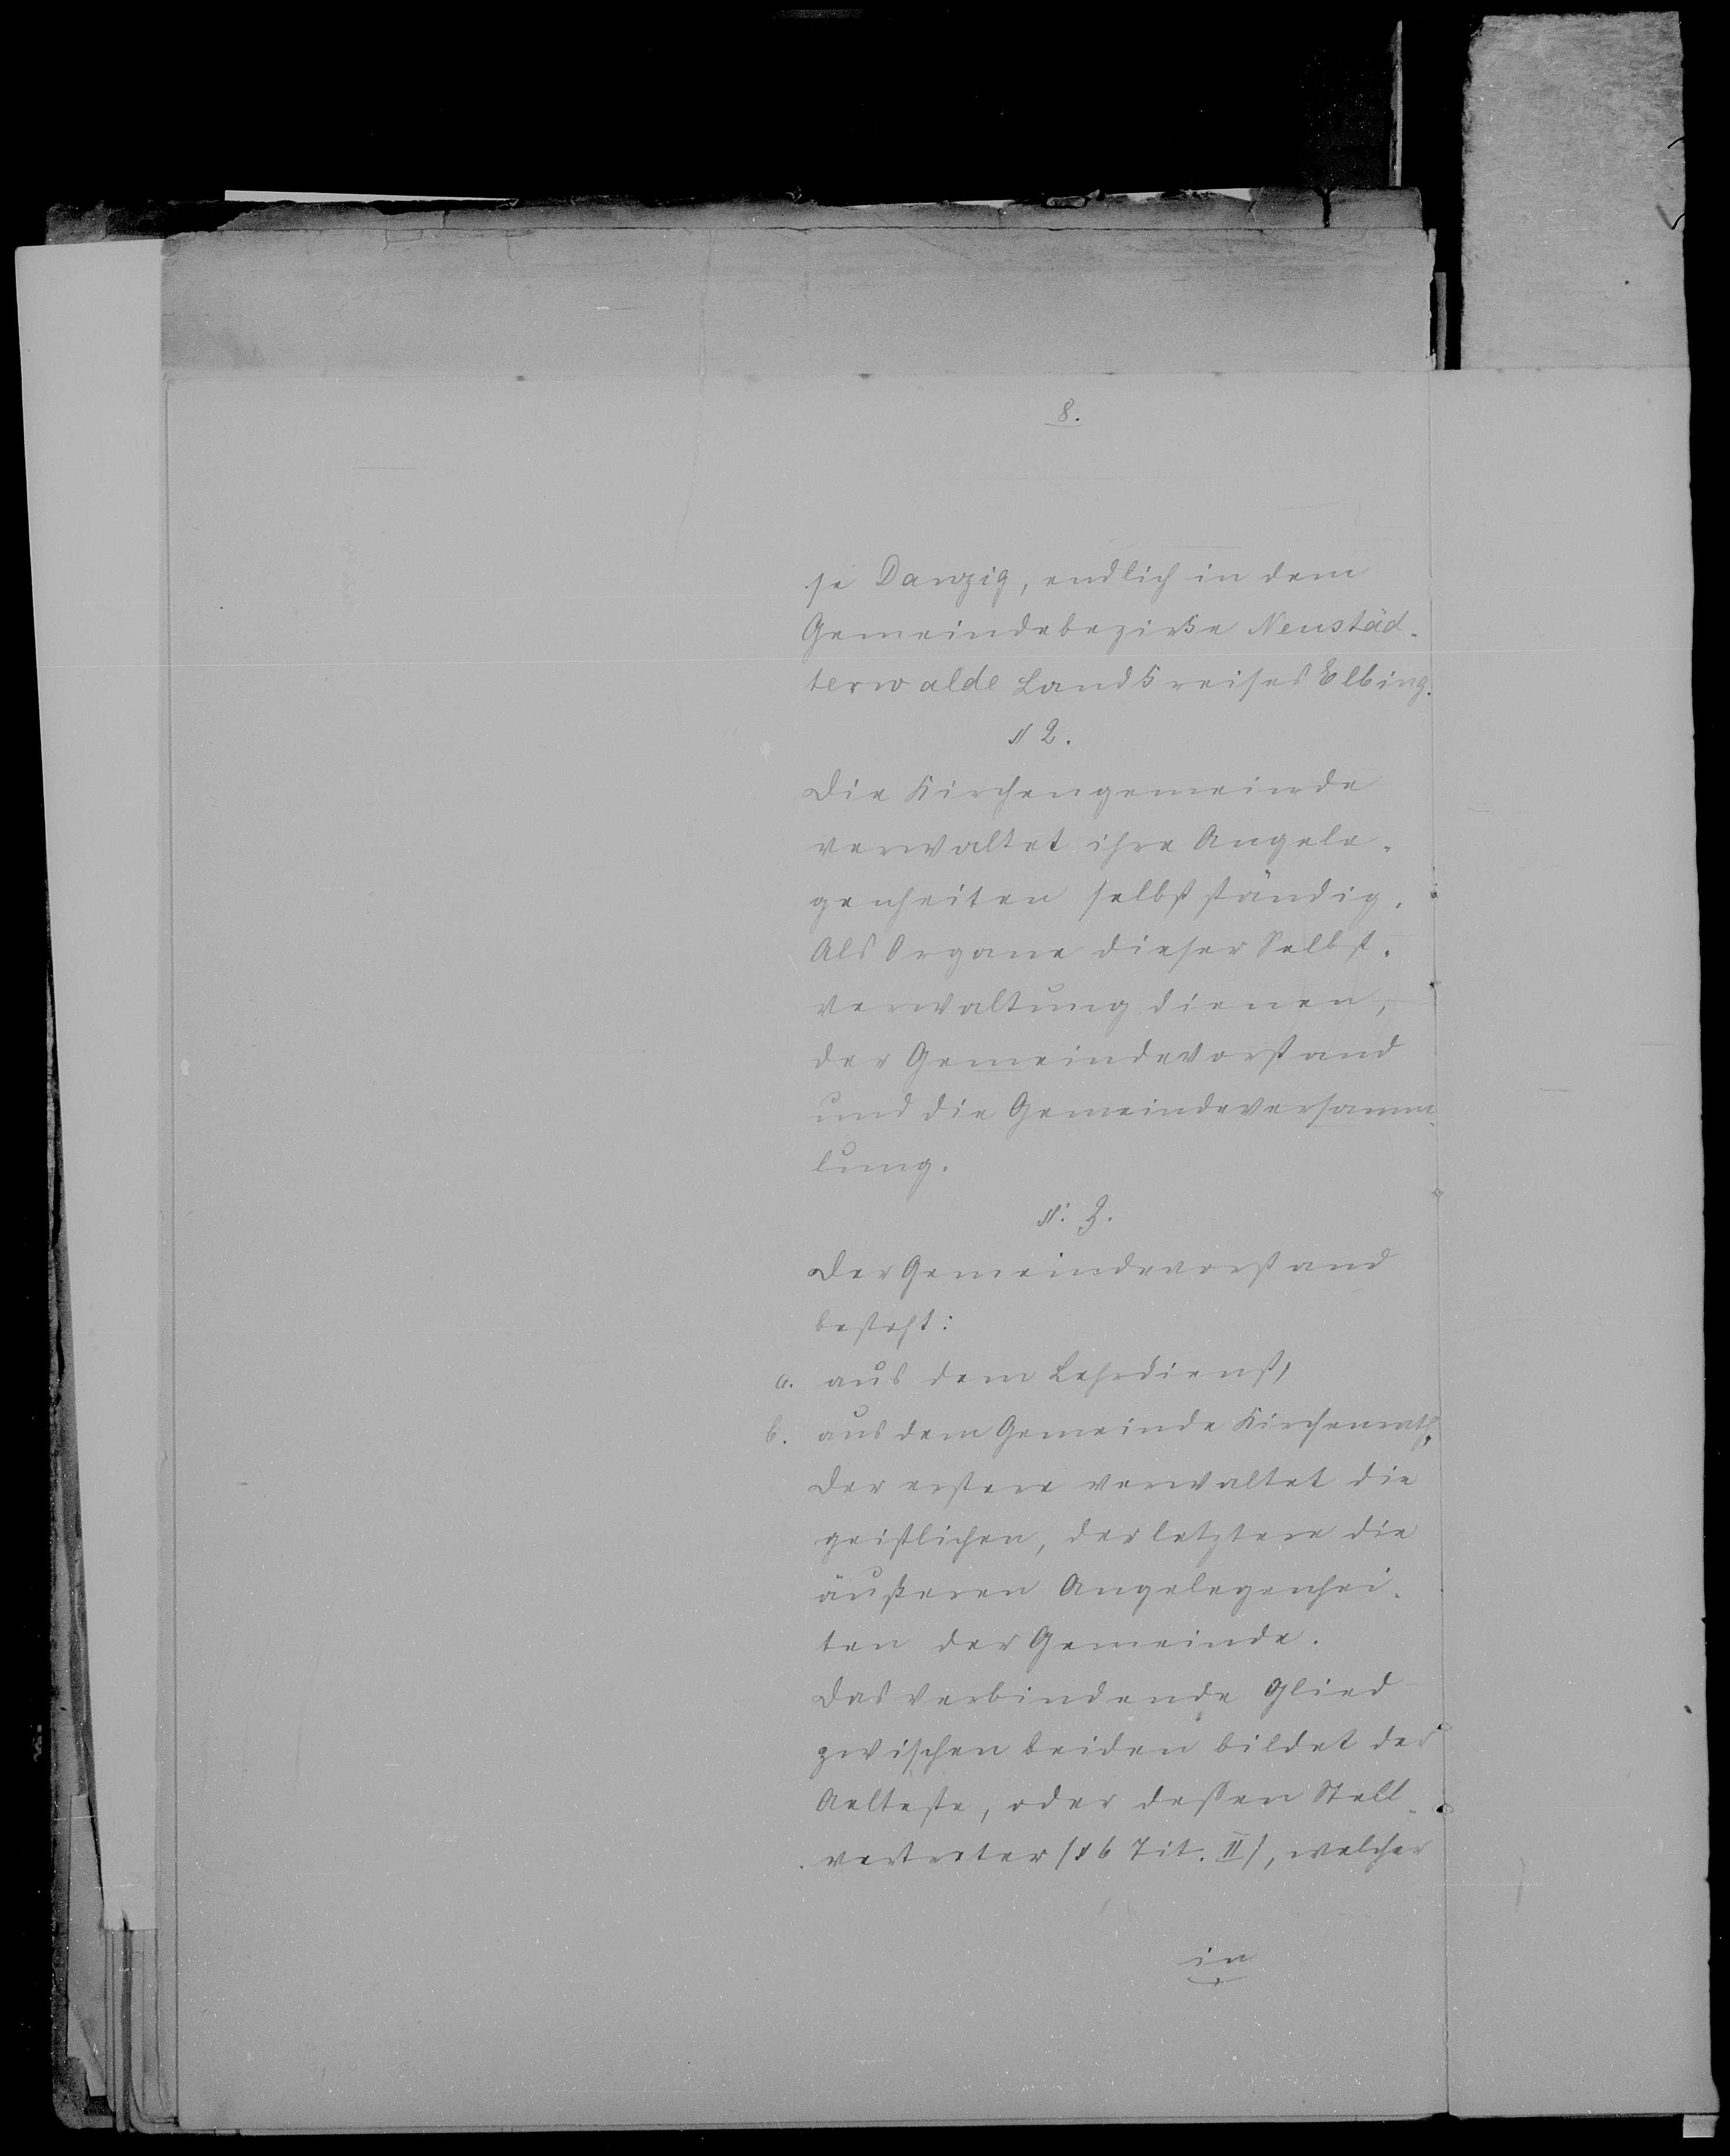 8.
se Danzig, endlich in dem
Gemeindebezirke Neustäd-
terwalde Landkreises Elbing.
§ 2.
Die Kirchengemeinde
verwaltet ihre Angele-
genheiten selbstständig.
Als Organe dieser Selbst-
verwaltung dienen,
der Gemeindevorstand
und die Gemeindeversamm-
lung.
§. 3.
Der Gemeindevorstand
besteht:
a. aus dem Lehrdienst,
b. aus dem Gemeinde Kirchenrath,
Der erstere verwaltet die
geistlichen, der letztere die
äußeren Angelegenhei-
ten der Gemeinde.
Das verbindende Glied
zwischen beiden bildet der
Aelteste, oder dessen Stell-
vertreter (§ 6 Tit. II), welcher
in